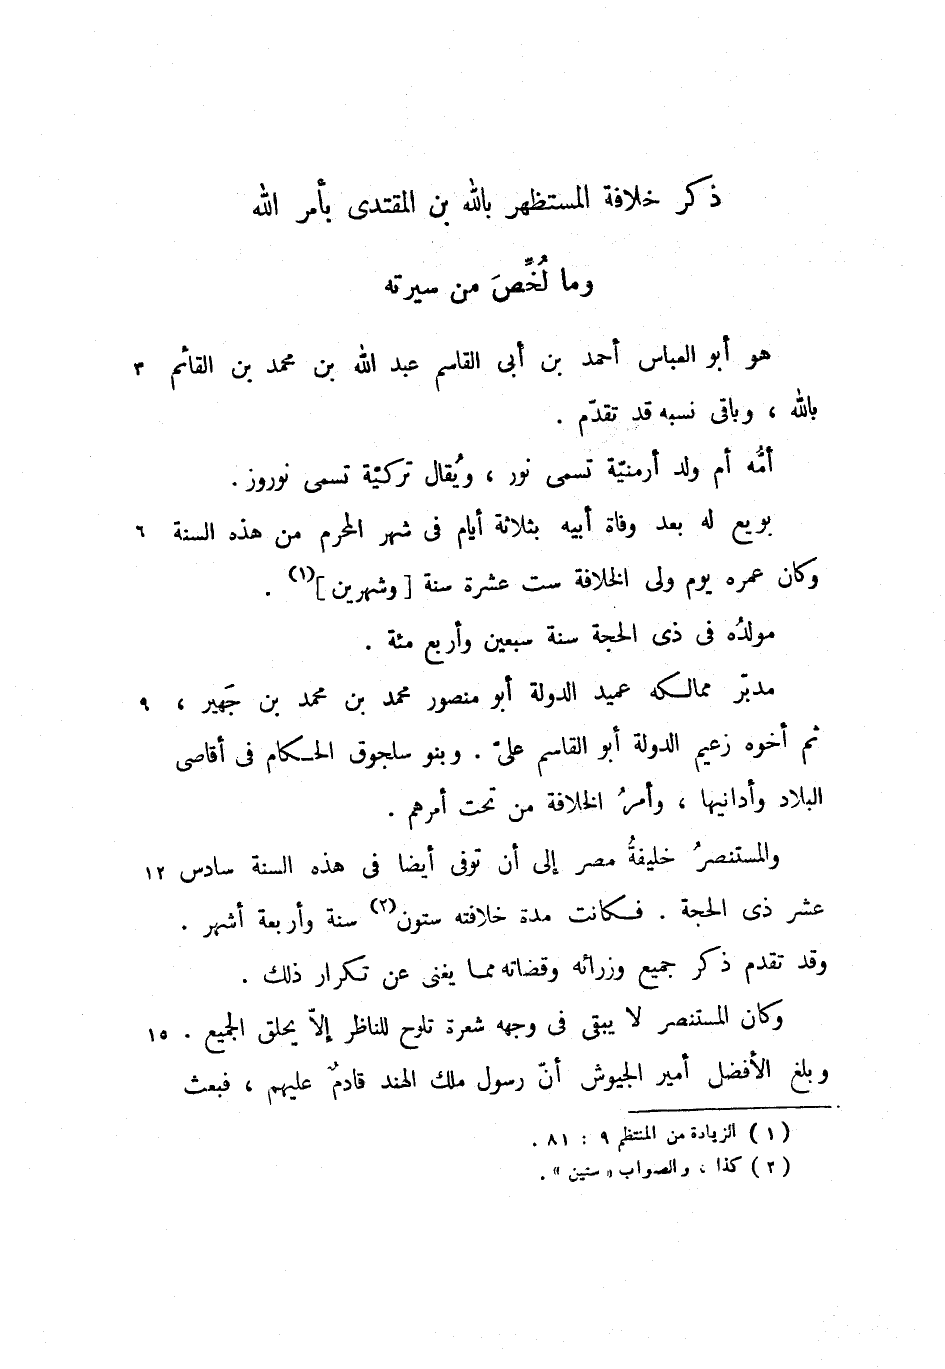 ذكر خلافة المستظهر بالله بن المقتدى بأمر الله
وما لُخِّصَ من سيرته
هو أبو العباس أحمد بن أبى القاسم عبد الله بن محمد بن القائم ٣
بالله ، وباقى نسبه قد تقدّم .
أمُّه أم ولد أرمنيّة تسمى نور ، ويُقال تركيّة تسمى نوروز .
بويع له بعد وفاة أبيه بثلاثة أيام فى شهر المحرم من هذه السنة ٦
وكان عمره يوم ولى الخلافة ست عشرة سنة [ وشهرين ](١) .
مولدُه فى ذى الحجة سنة سبعين وأربع مئة .
مدبّر ممالكه عميد الدولة أبو منصور محمد بن محمد بن جَهير ، ٩
ثم أخوه زعيم الدولة أبو القاسم علىّ . وبنو سلجوق الحكام فى أقاصى
البلاد وأدانيها ، وأمرُ الخلافة من تحت أمرهم .
والمستنصرُ خليفةُ مصر إلى أن توفى أيضا فى هذه السنة سادس ١٢
عشر ذى الحجة . فكانت مدة خلافته ستون(٢) سنة وأربعة أشهر .
وقد تقدم ذكر جميع وزرائه وقضاته مما يغنى عن تكرار ذلك .
وكان المستنصر لا يبقى فى وجهه شعرة تلوح للناظر إلاّ يحلق الجميع . ١٥
وبلغ الأفضل أمير الجيوش أنّ رسول ملك الهند قادمٌ عليهم ، فبعث
( ١ ) الزيادة من المنتظم ٩ : ٨١ .
( ٢ ) كذا ، والصواب « ستين » .